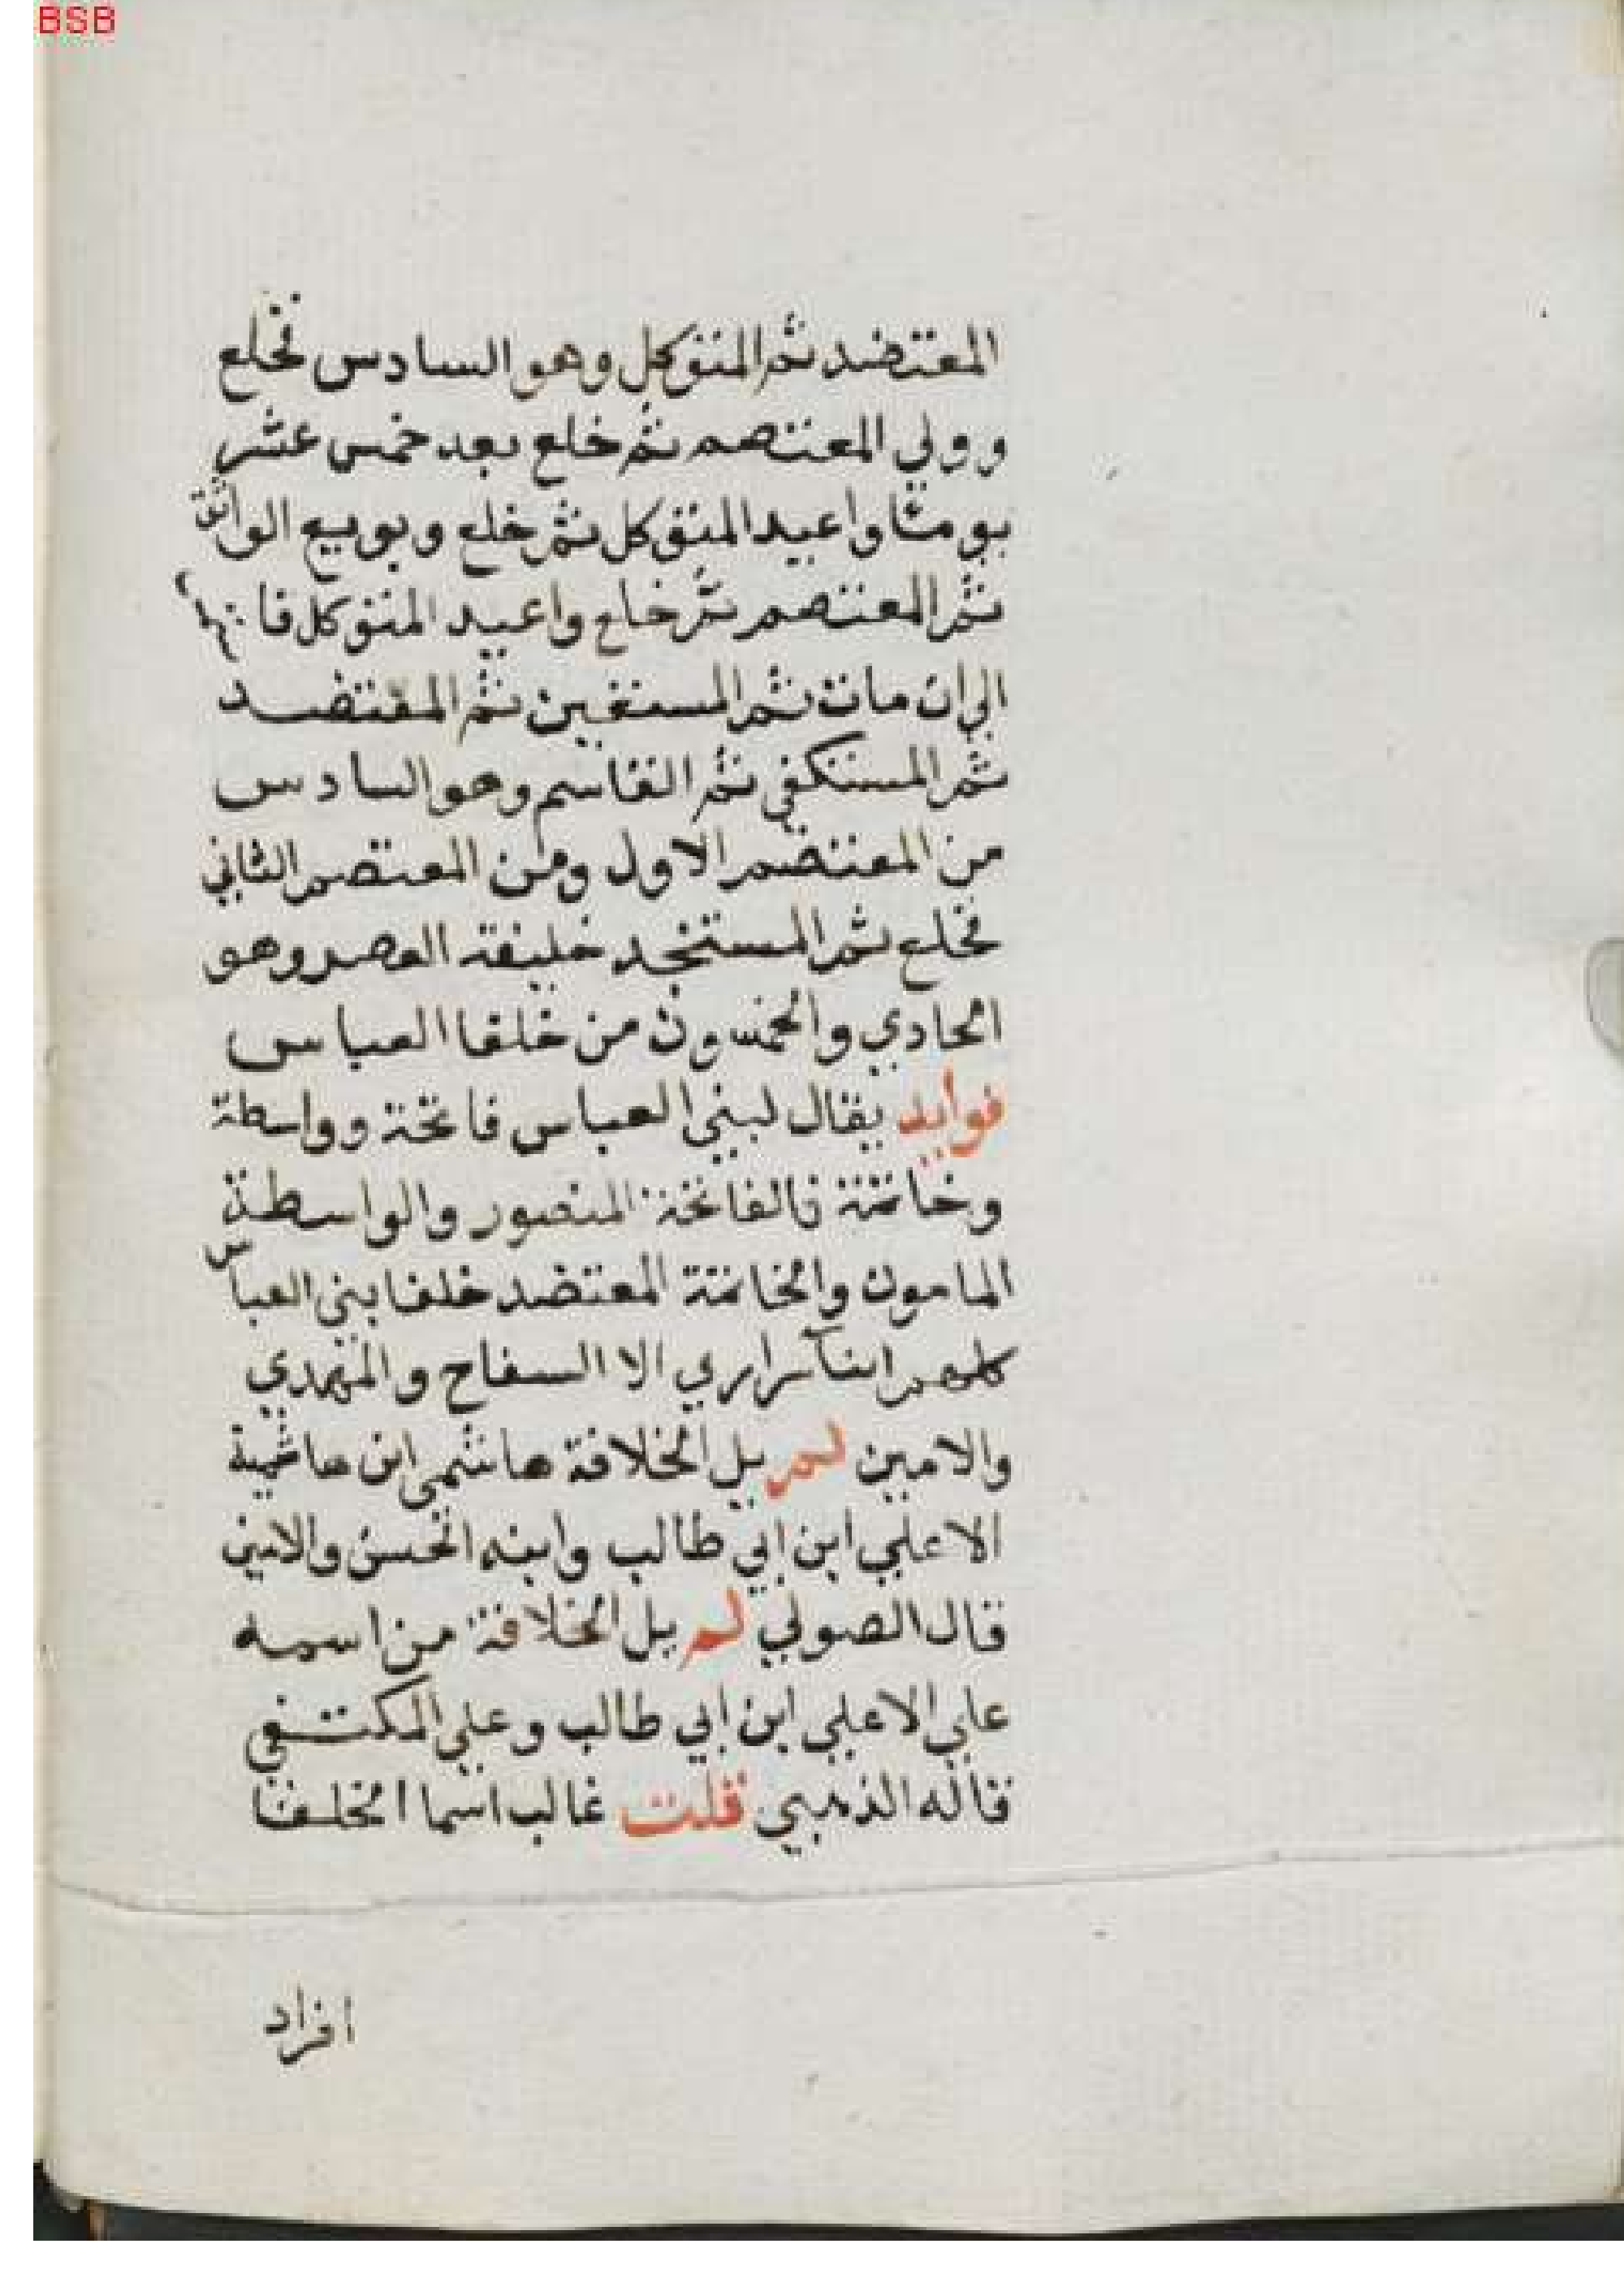 BSB
المعتضد ثم المتوكل وهو السادس فخلع
وولي المعتصم ثم خلع بعد خمس عشر
يوما واعيد المتوكل ثم خلع وبويع الواثق
ثم المعتصم ثم خلع واعيد المتوكل
الي ان مات ثم المستعين ثم المعتضد
ثم المستكفي ثم القاسم وهو السادس
من المعتضم الاول ومن المعتصم الثاني
فخلع ثم المستنجد خليفة العصر وهو
الحادي والخمسون من خلفا العباس
فوايد يقال لبني العباس فاتحة وواسطة
وخاتمة فالفاتحة المنصور والواسطة
المامون والخاتمة المعتضد خلفا بني العباس
كلهم ابنآ سراري الا السفاح والمهدي
والامين لم يل الخلافة هاشمي ابن هاشمية
الا علي ابن ابي طالب وابنه الحسن والامين
قال الصولي لم يل الخلافة من اسمه
علي الا علي ابن ابي طالب وعلي المكتفي
قاله الذهبي قلت غالب اسما الخلفا
افراد